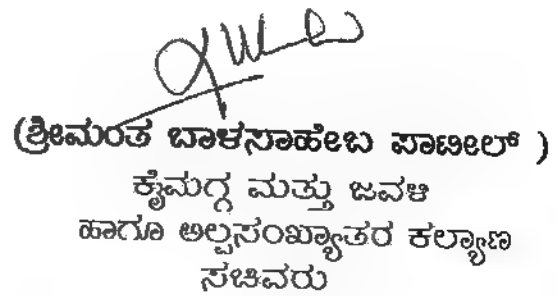 (ಶ್ರೀಮಂತ ಬಾಳಸಾಹೇಬ ಪಾಟೀಲ್ )
ಕೈಮಗ್ಗ ಮತ್ತು ಜವಳಿ
ಹಾಗೂ ಅಲ್ಪಸಂಖ್ಯಾತರ ಕಲ್ಯಾಣ
ಸಚಿವರು